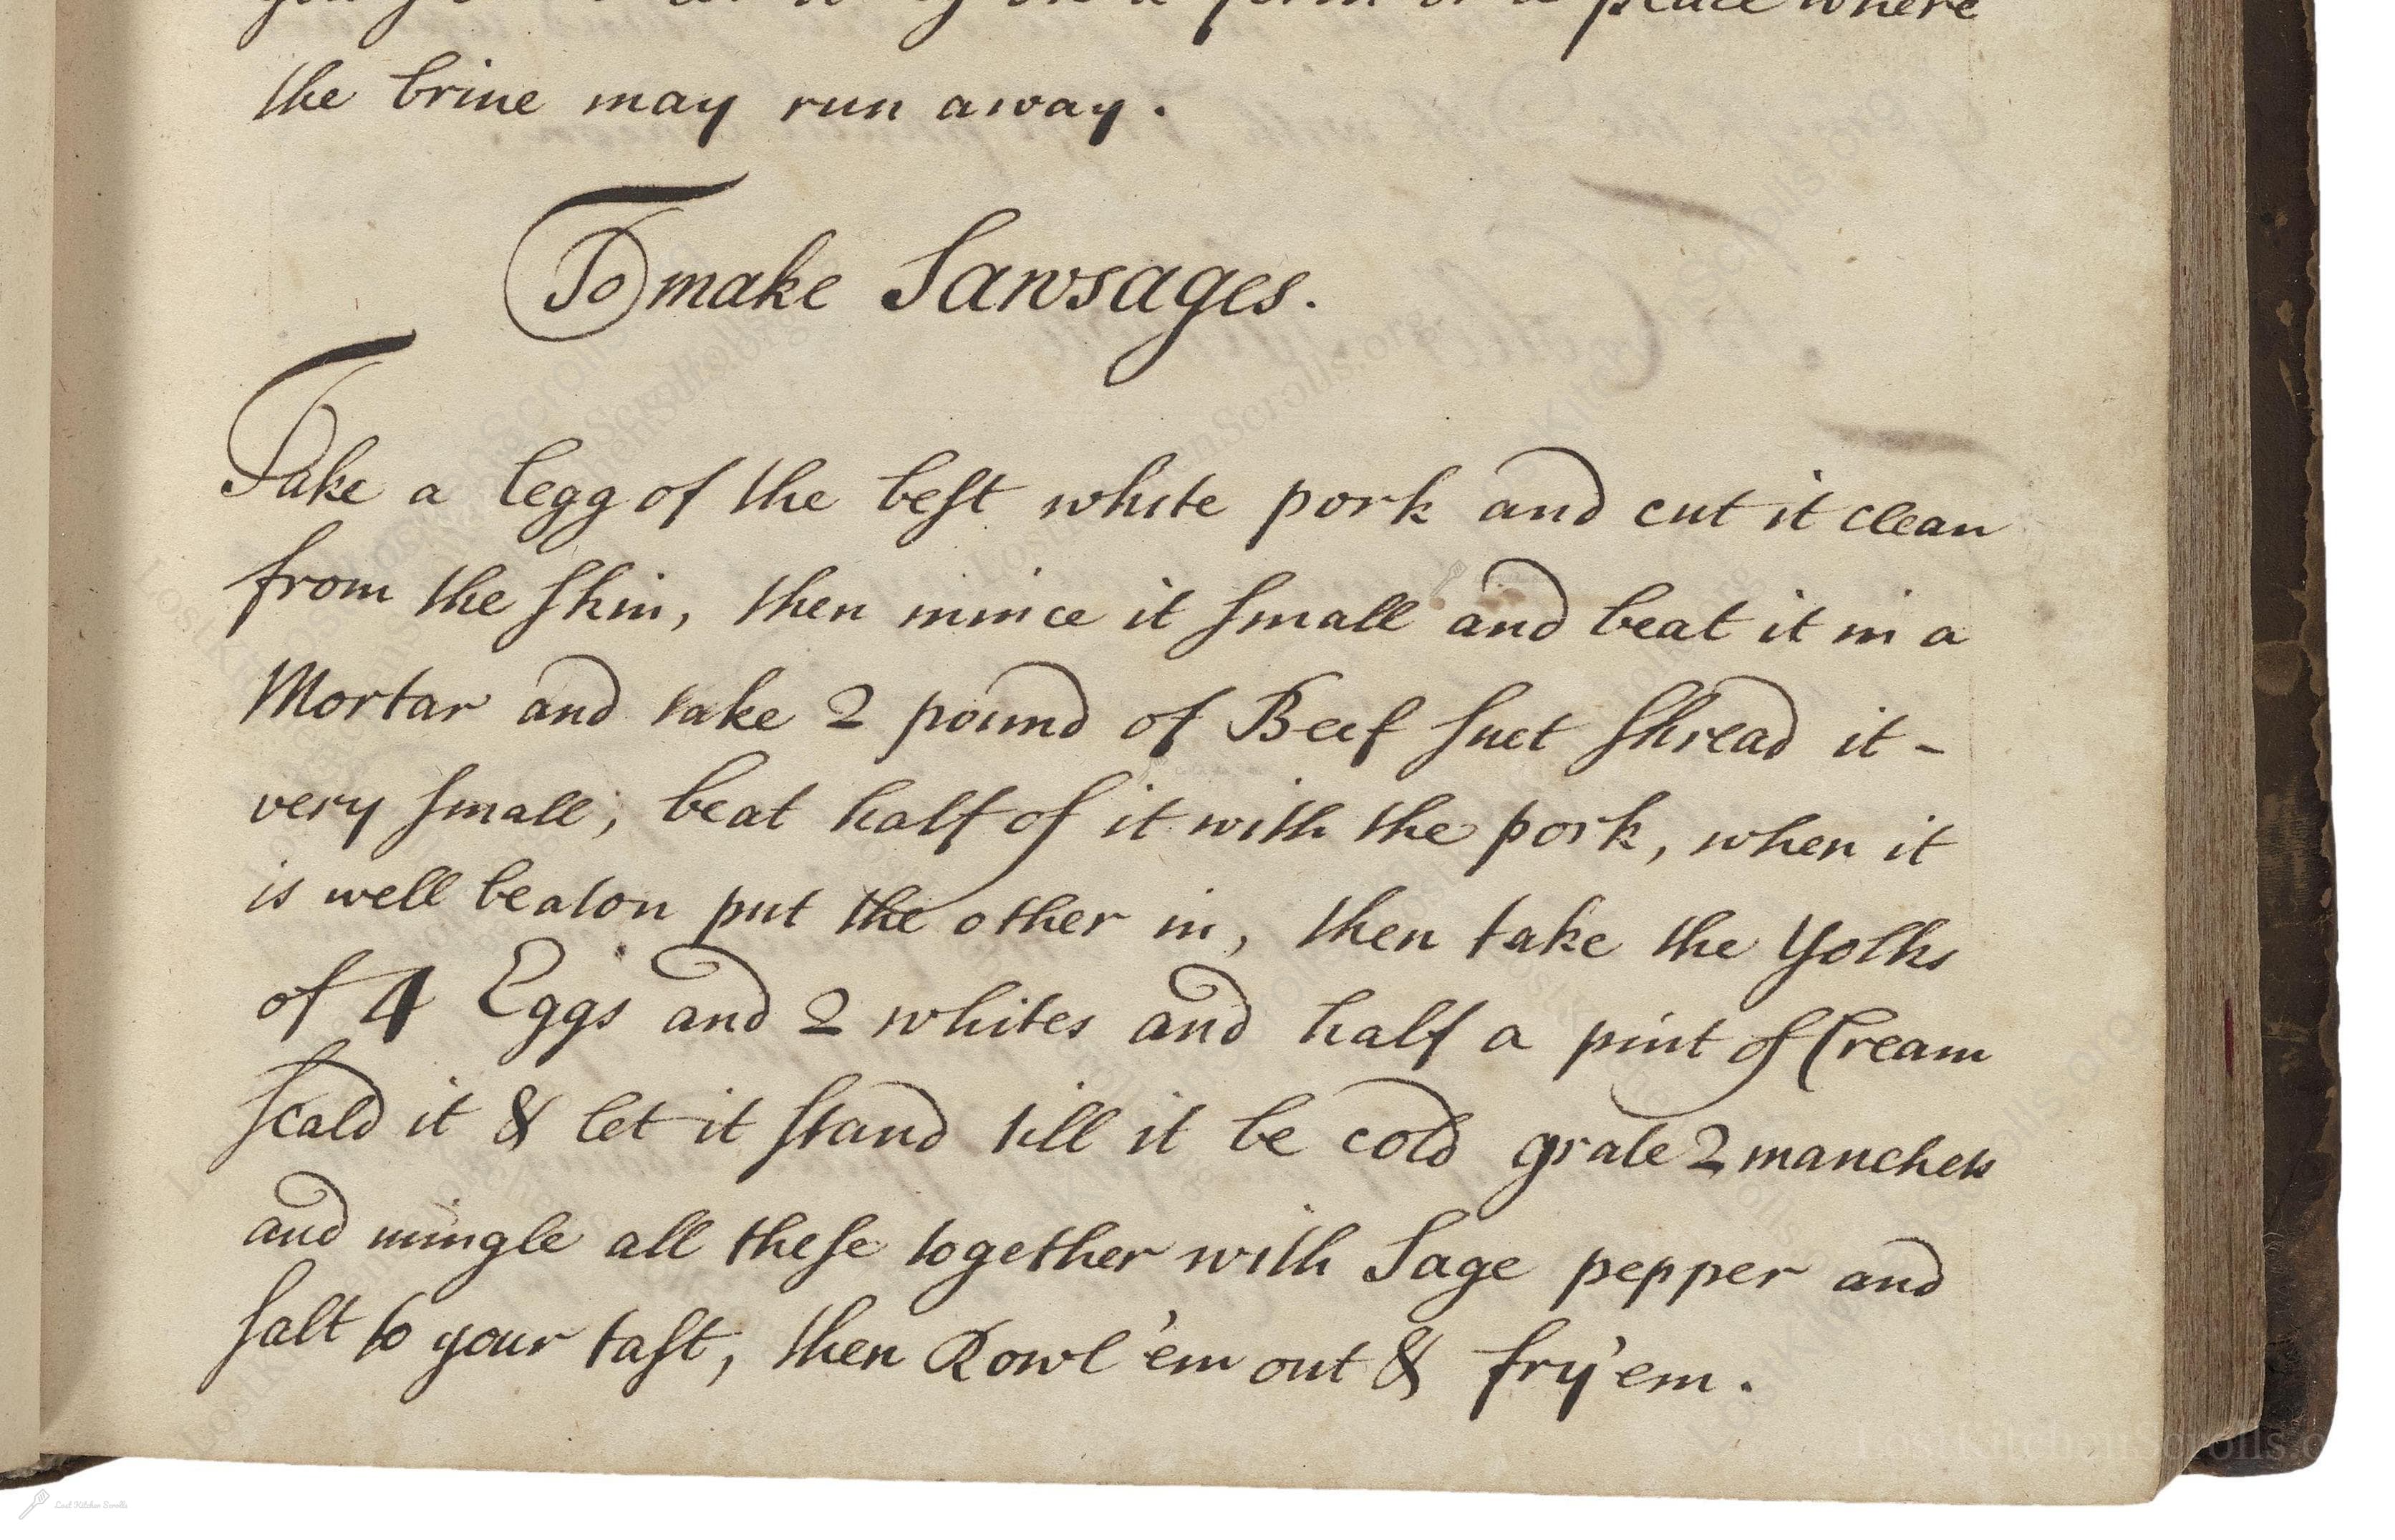 a form or a place where
the brine may run away.
To make Sawsages.
Take a legg of the beſt white pork and cut it clean
from the ſkin, then mince it ſmall and beat it in a
Mortar and take 2 pound of Beef ſuet ſhread it -
very ſmall; beat half of it with the pork, when it
is well beaton put the other in, then take the Yolks
of 4 Eggs and 2 whites and half a pint of Cream
ſcald it & let it ſtand till it be cold grate 2 manchets
and mingle all theſe together with Sage pepper and
ſalt to your taſt, then Rowl 'em out & fry 'em.
LostKitchenScrolls.o
Lost Kitchen Scrolls